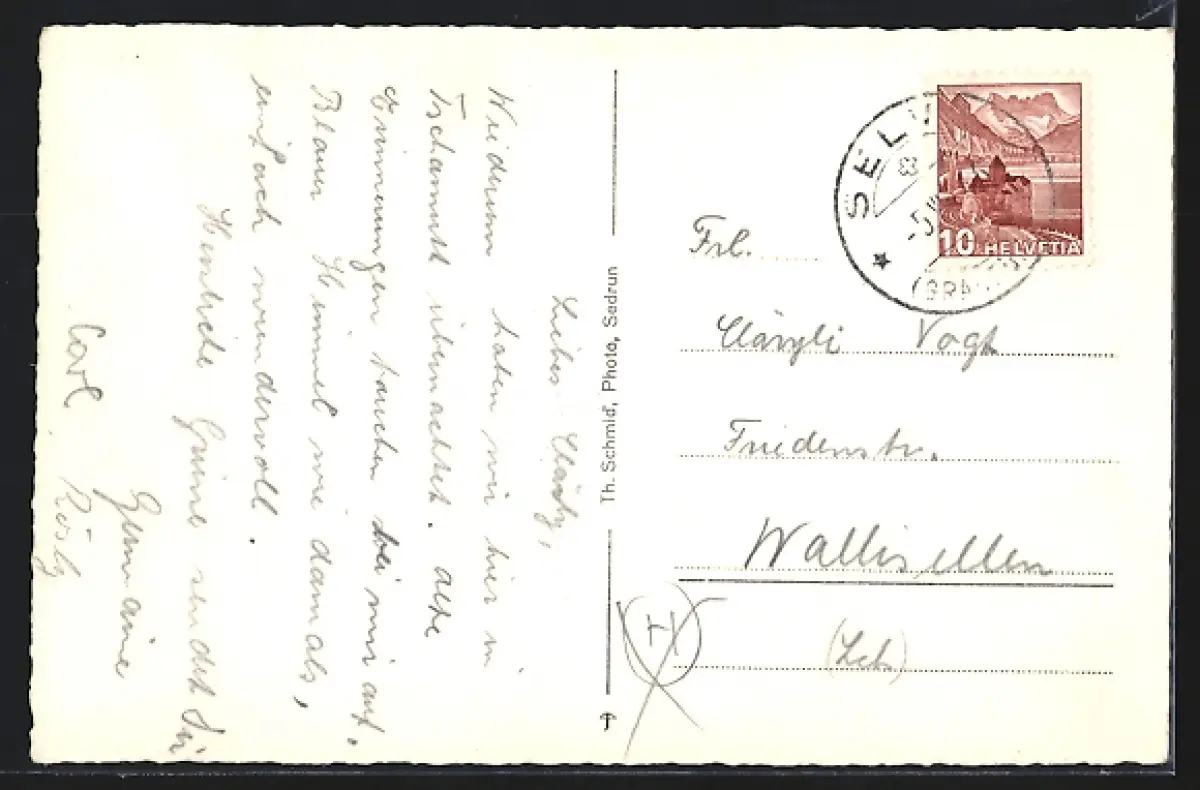 Liebes Clärly,
Wiederum haben wir hier in
Tschamutt übernachtet. Alte
Erinnerungen tauchen bei mir auf,
Blauer Himmel wie damals,
einfach wundervoll.
Herzliche Grüsse sendet Dir
Germaine
Rösly
Carl
Th. Schmid, Photo, Sedrun
SELV
(GRA
10 HELVETIA
Frl.
Clärli Vogt
Friedenstr.
Wallisellen
(Zch)
I